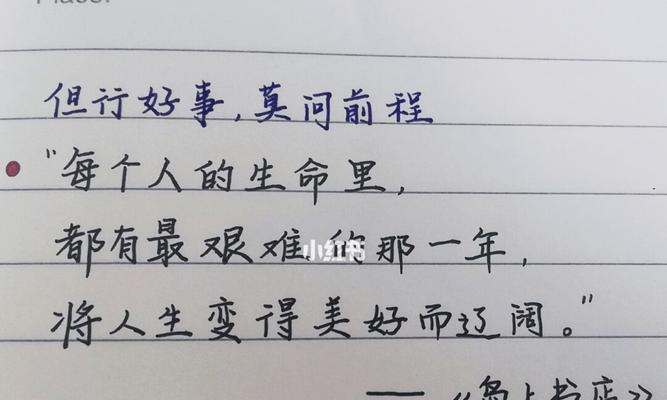 Place:
但行好事,莫问前程
"每个人的生命里,
都有最艰难的那一年,
将人生变得美好而辽阔。"
——《岛上书店》
小红书